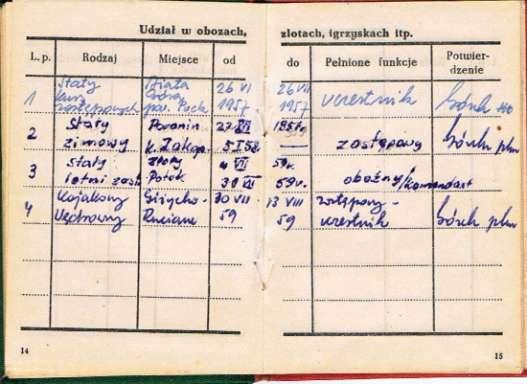 Udział w obozach, zlotach, igrzyskach itp.
L. p. Rodzaj Miejsce od do Pełnione funkcje Potwierdzenie
1 Stały kurs zastępowych Biała Góra pow. Puck 26 VI 1957 26 VII 1957 uczestnik Górck
2 Stały zimowy Poronin k. Zakop. 27 XII 5 I 58 zastępowy Górck phm
3 stały letni Złoty Potok 4 VII 30 VII 59 r. 59 r. oboźny/komendant
4 Kajakowy Wędrowny Giżycko- Ruciane 30 VII 59 13 VIII 59 zastępowy- uczestnik Górck phm
14
15